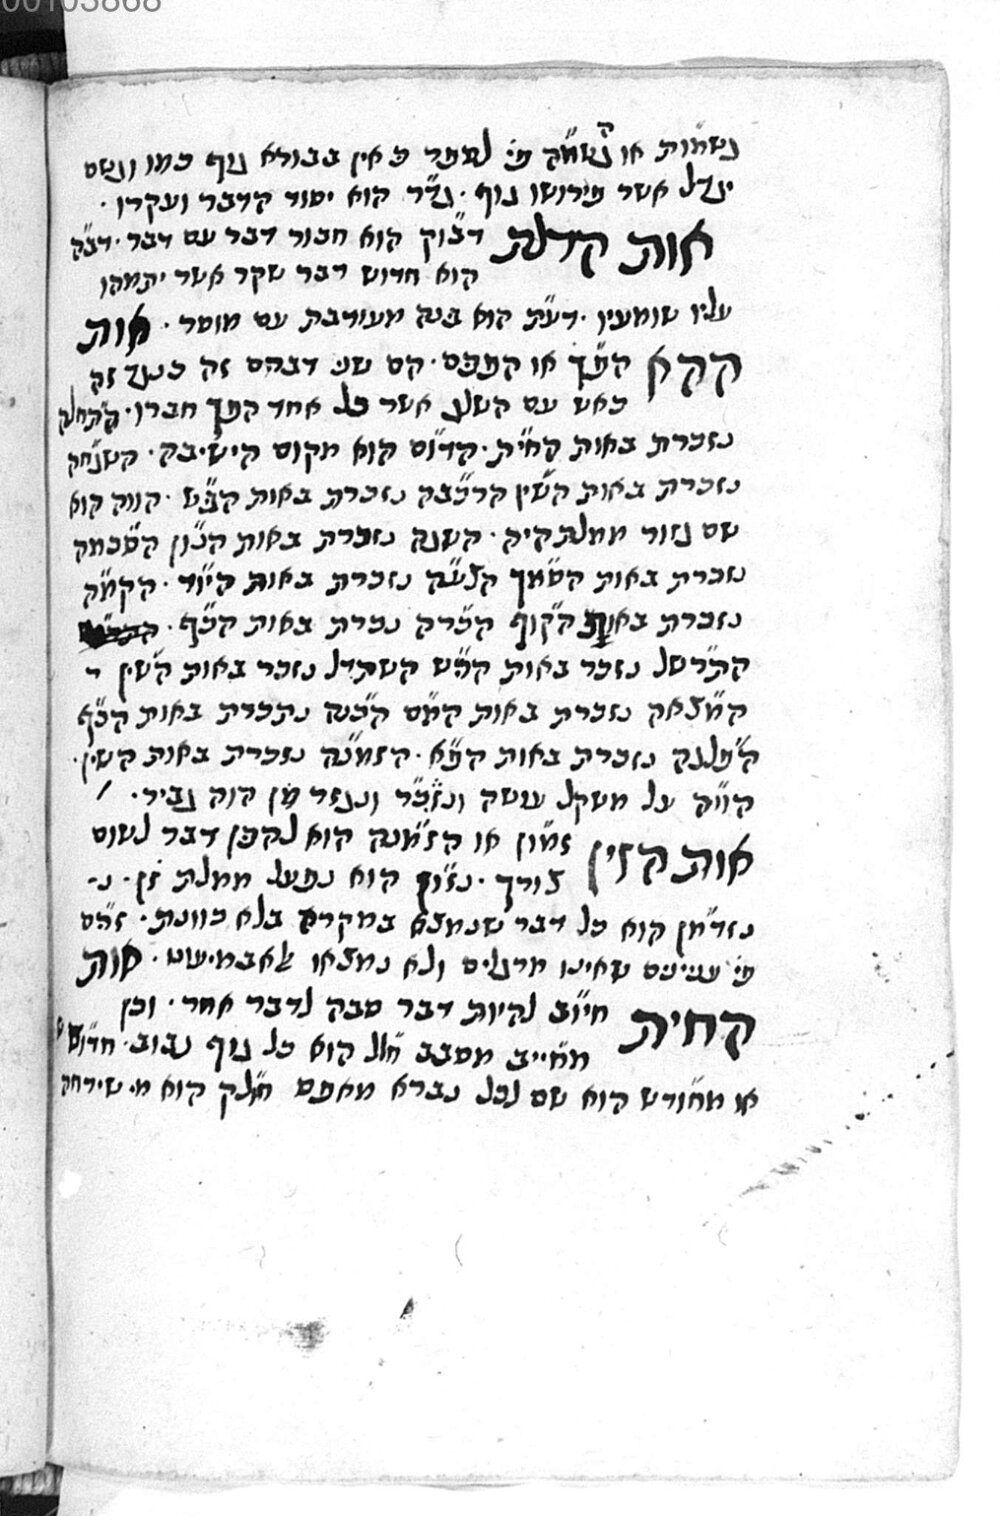 00103868
גשמות או הגשמה פי' לאמר כאין בבורא גוף כמו ונשם
יגדל אשר פירושו גוף. גדר הוא יסוד הדבר ועקרו.
אות הדלת דבוק הוא חבור דבר עם דבר. דבה
הוא חדוש דבר שקר אשר יתמהו
עליו שומעין. דעת הוא בנה מעורבת עם מוסר. אות
ההא הפך או הפכם. הם שני דברים זה כנגד זה
כאש עם השלג אשר כל אחד הפך חברו. התחלה
נזכרת באות החית. הדום הוא מקום הישיבה. השגחה
נזכרת באות השין הרכבה נזכרת באות הכ"ש. הווה הוא
שם גזור ממלת היה. השגה נזכרת באות הנון הסכמה
נזכרת באות הסמך הצעה נזכרת באות היוד. הקמה
נזכרת באות הקוף הכרה נכרת באות הכף.
התרשל נזכר באות הריש השתדל נזכר באות השין
המצאה נזכרת באות המם הכנה נזכרת באות הכף
הפלגה נזכרת באות הפא. הזמנה נזכרת באות השין.
הויה על משקל עושה ונזכר ונגזר מן הוה גביר.
אות הזין זמון או הזמנה הוא להכן דבר לשום
צורך. נזון הוא נפעל ממלת זן.
נזדמן הוא כל דבר שנמצא במקרה בלא כוונת. זרים
פי' ענינים שאינו מרגלים ולא נמצאו אלא במיעוט. אות
החית חיוב להיות דבר סבה לדבר אחר. וכן
מחייב מסבב חלל הוא כל גוף נבוב. חדוש
או מחודש הוא שם לכל נברא מאפס חולק הוא מי שירחק